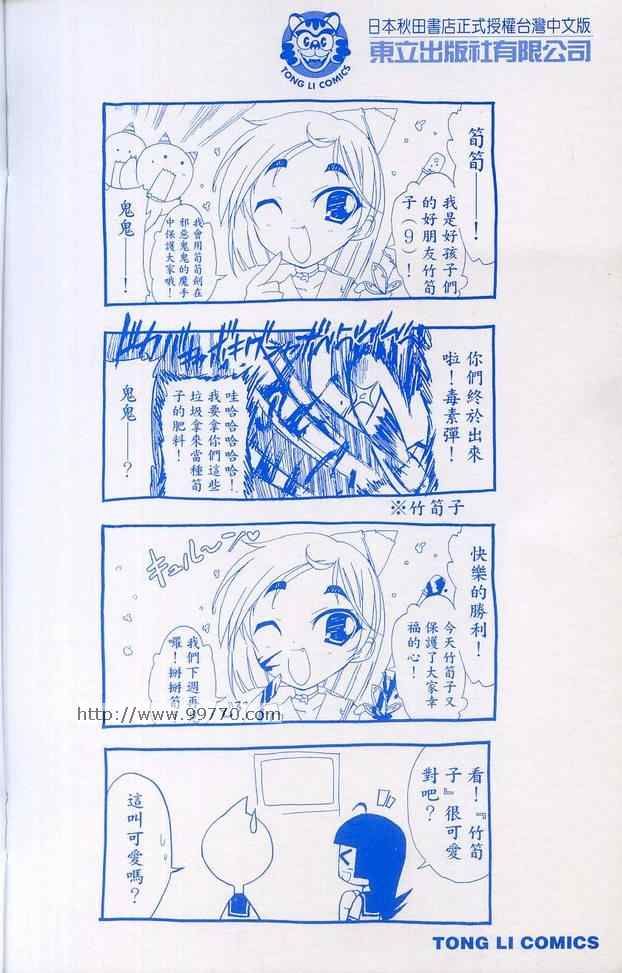 日本秋田書店正式授權台灣中文版
東立出版社有限公司
TONG LI COMICS
筍筍——！
我是好孩子們
的好朋友竹筍
子（9）！
我會用筍筍劍在
邪惡鬼鬼的魔手
中保護大家哦！
鬼鬼——！
你們終於出來
啦！毒素彈！
哇哈哈哈哈哈！
我要拿你們這些
垃圾拿來當種筍
子的肥料！
鬼鬼——？
※竹筍子
快樂的勝利！
今天竹筍子又
保護了大家幸
福的心！
キュル〜ン♡
我們下週再
囉！掰掰筍
http://www.99770.com
看！『竹筍
子』很可愛
對吧？
這叫可愛嗎？
TONG LI COMICS